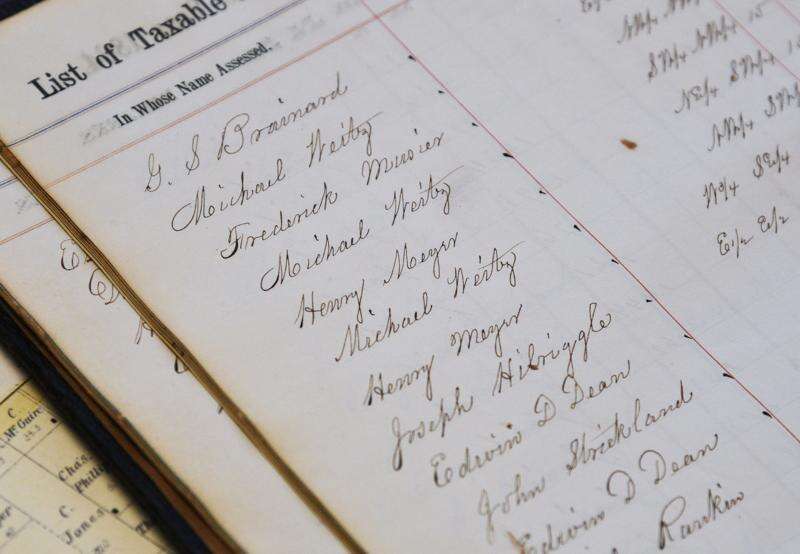 List of Taxable
In Whose Name Assessed.
G. S Brainard
Michael Weitz
Frederick
Michael Weitz
Henry Meyer
Michael Weitz
Henry Meyer
Joseph Hilriggle
Edwin D Dean
John Strickland
Edwin D Dean
Rankin
NW/4
SW/4 NW/4 15
NE/4 SW/4
NW/4
W/4 SE/4
E1/2 E1/2
C
McGuire
Chas.
C.
Jones